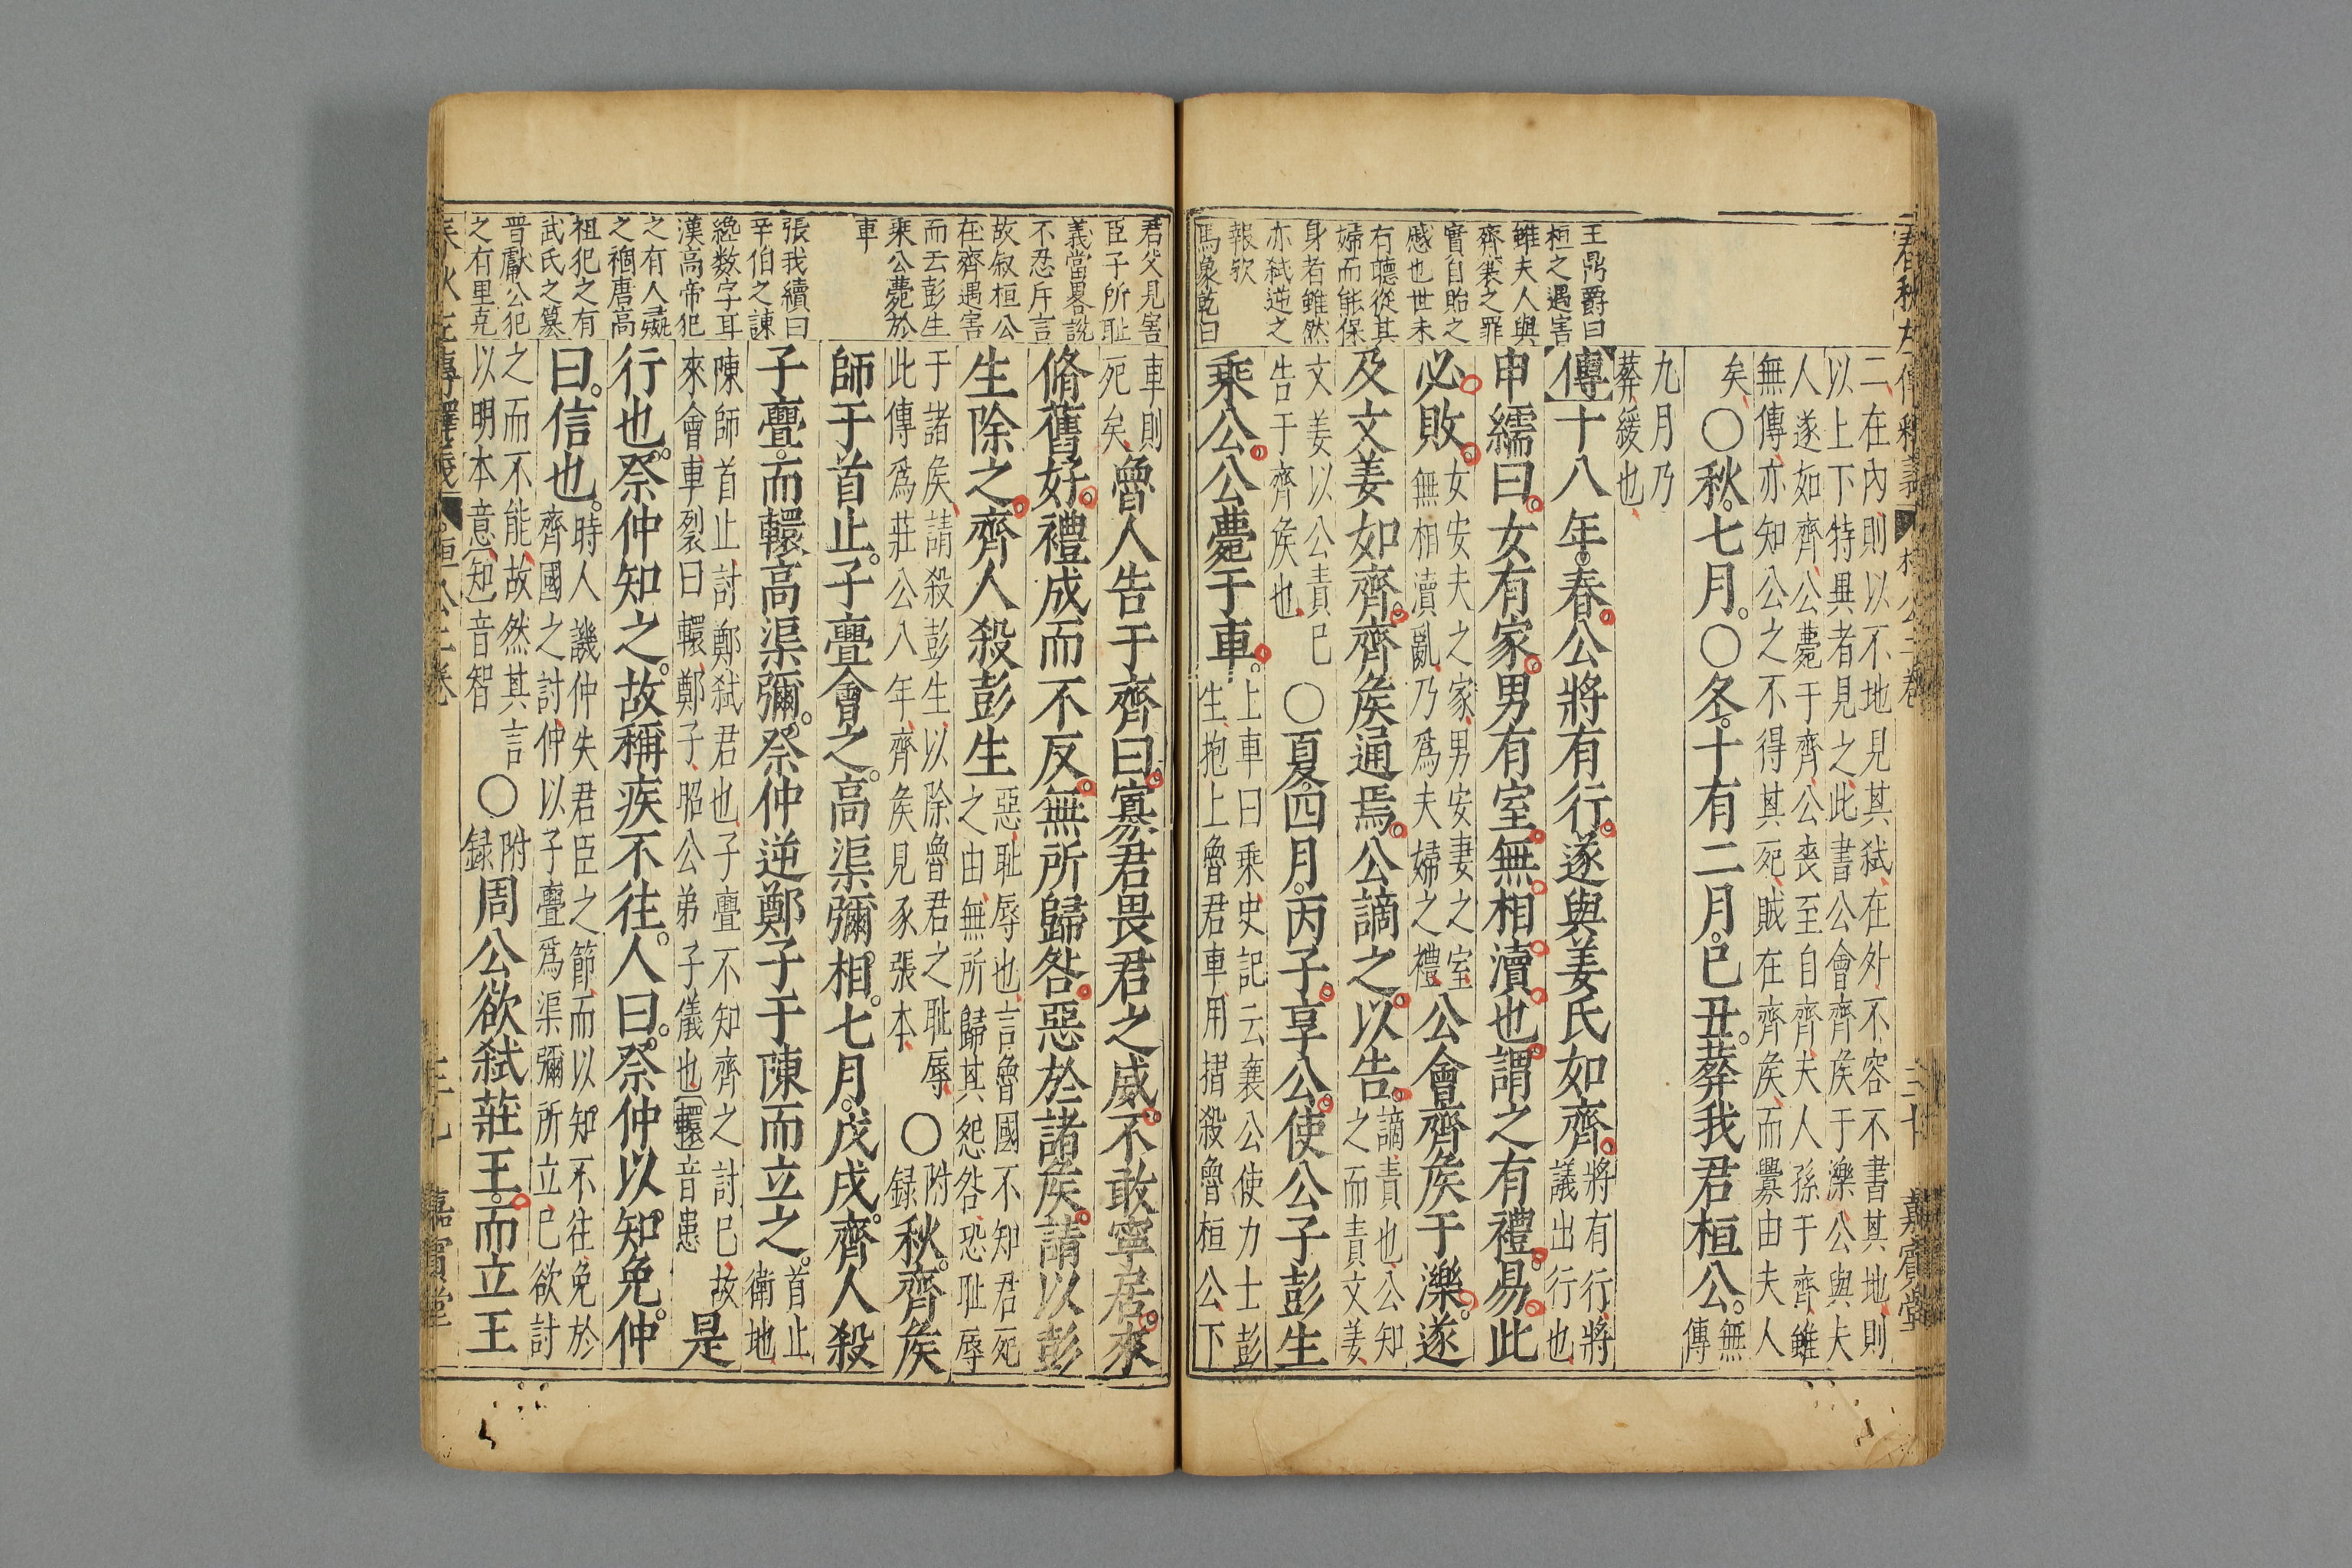 王鼎爵曰
桓之遇害
雖夫人與
齊襄之罪
實自貽之
慼也世未
有聽從其
婦而能保
身者雖然
亦弒逆之
報歟
馬象乾曰
二、在內則以不地見其弒、在外不容不書其地、則
以上下特異者見之、此書公會齊矦于濼、公與夫
人遂如齊、公薨于齊、公喪至自齊、夫人孫于齊、雖
無傳、亦知公之不得其死、賊在齊矦、而釁由夫人
矣、〇秋。七月。〇冬。十有二月。已丑。葬我君桓公。無傳
九月乃
葬、緩也、
傳十八年。春。公將有行。遂與姜氏如齊。將有行、將議出行也、
申繻曰。女有家。男有室。無相瀆也。謂之有禮。易此
必敗。女安夫之家、男安妻之室、無相瀆亂、乃爲夫婦之禮、公會齊矦于濼。遂
及文姜如齊。齊矦通焉。公謫之。以告。謫、責也、公知之而責文姜、
文姜以公責已告于齊矦也、〇夏。四月。丙子。享公。使公子彭生
乘公。公薨于車。上車曰乘、史記云襄公使力士彭生、抱上魯君車、用摺殺魯桓公、下
春秋左傳釋義 桓公二卷 嘉賓堂
君父見害
臣子所耻
義當畧說
不忍斥言
故叙桓公
在齊遇害
而云彭生
乘公薨於
車
張我續曰
辛伯之諌
纔数字耳
漢高帝犯
之有人彘
之禍唐高
祖犯之有
武氏之簒
晋獻公犯
之有里克
車則死矣、魯人告于齊曰。寡君畏君之威。不敢寧居。來
脩舊好。禮成而不反。無所歸咎。惡於諸矦。請以彭
生除之。齊人殺彭生惡、耻辱也、言魯國不知君死之由、無所歸其怨咎、恐耻辱
于諸矦、請殺彭生、以除魯君之耻辱、此傳爲莊公八年、齊矦見豕張本、〇附録秋。齊矦
師于首止。子亹會之。高渠彌相。七月。戊戌。齊人殺
子亹。而轘高渠彌。祭仲逆鄭子于陳而立之。首止衛地、
陳師首止、討鄭弒君也、子亹不知齊之討已、故來會、車裂曰轘、鄭子、昭公弟子儀也、轘音患是
行也。祭仲知之。故稱疾不往。人曰。祭仲以知免。仲
曰。信也。時人譏仲失君臣之節、而以知不往、免於齊國之討、仲以子亹爲渠彌所立、已欲討
之而不能、故然其言以明本意、知音智〇附録周公欲弒莊王。而立王
春秋左傳釋義 桓公二卷 三十九 嘉賓堂